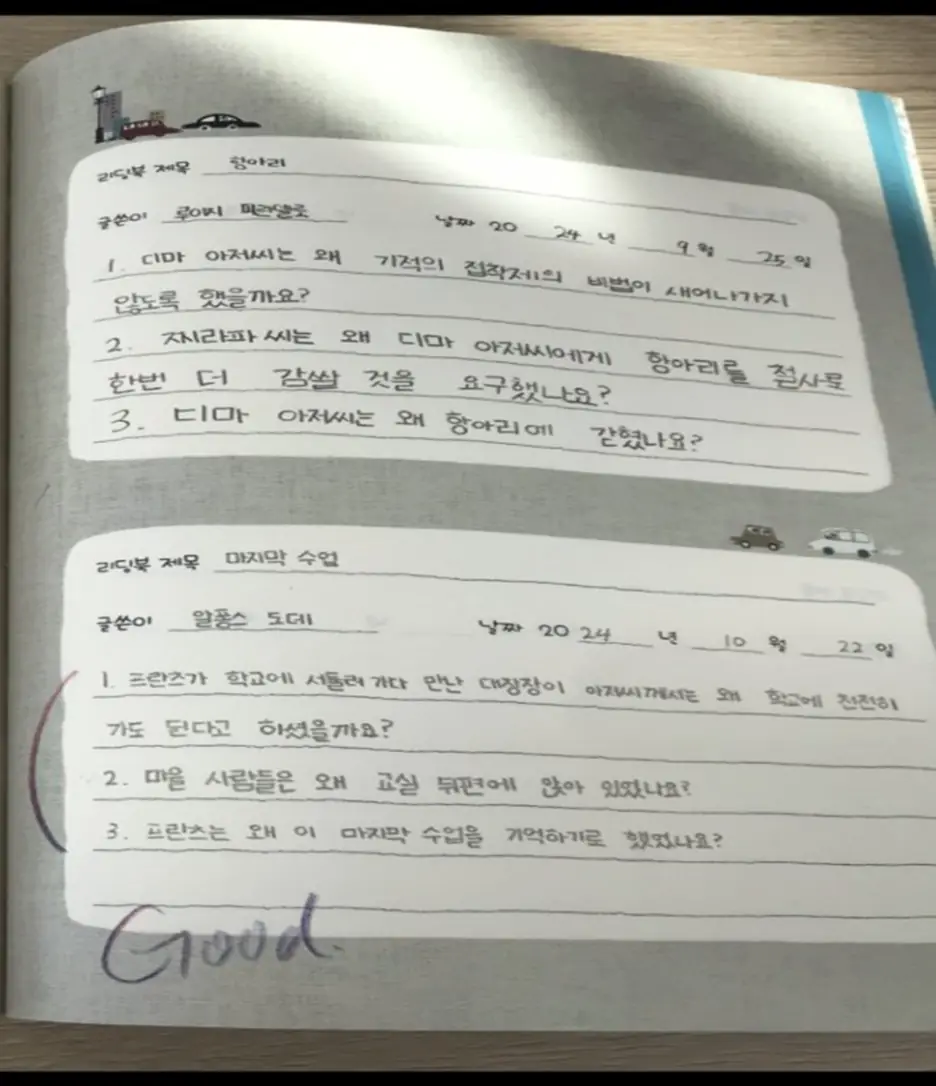 리딩북 제목 항아리
글쓴이 루이지 피란델로
날짜 20 24 년 9 월 25 일
1. 디마 아저씨는 왜 기적의 접착제의 비법이 새어나가지
않도록 했을까요?
2. 지라파 씨는 왜 디마 아저씨에게 항아리를 철사로
한번 더 감쌀 것을 요구했나요?
3. 디마 아저씨는 왜 항아리에 갇혔나요?
리딩북 제목 마지막 수업
글쓴이 알퐁스 도데
날짜 20 24 년 10 월 22 일
1. 프란츠가 학교에 서둘러 가다 만난 대장장이 아저씨께서는 왜 학교에 천천히
가도 된다고 하셨을까요?
2. 마을 사람들은 왜 교실 뒤편에 앉아 있었나요?
3. 프란츠는 왜 이 마지막 수업을 기억하기로 했었나요?
Good.